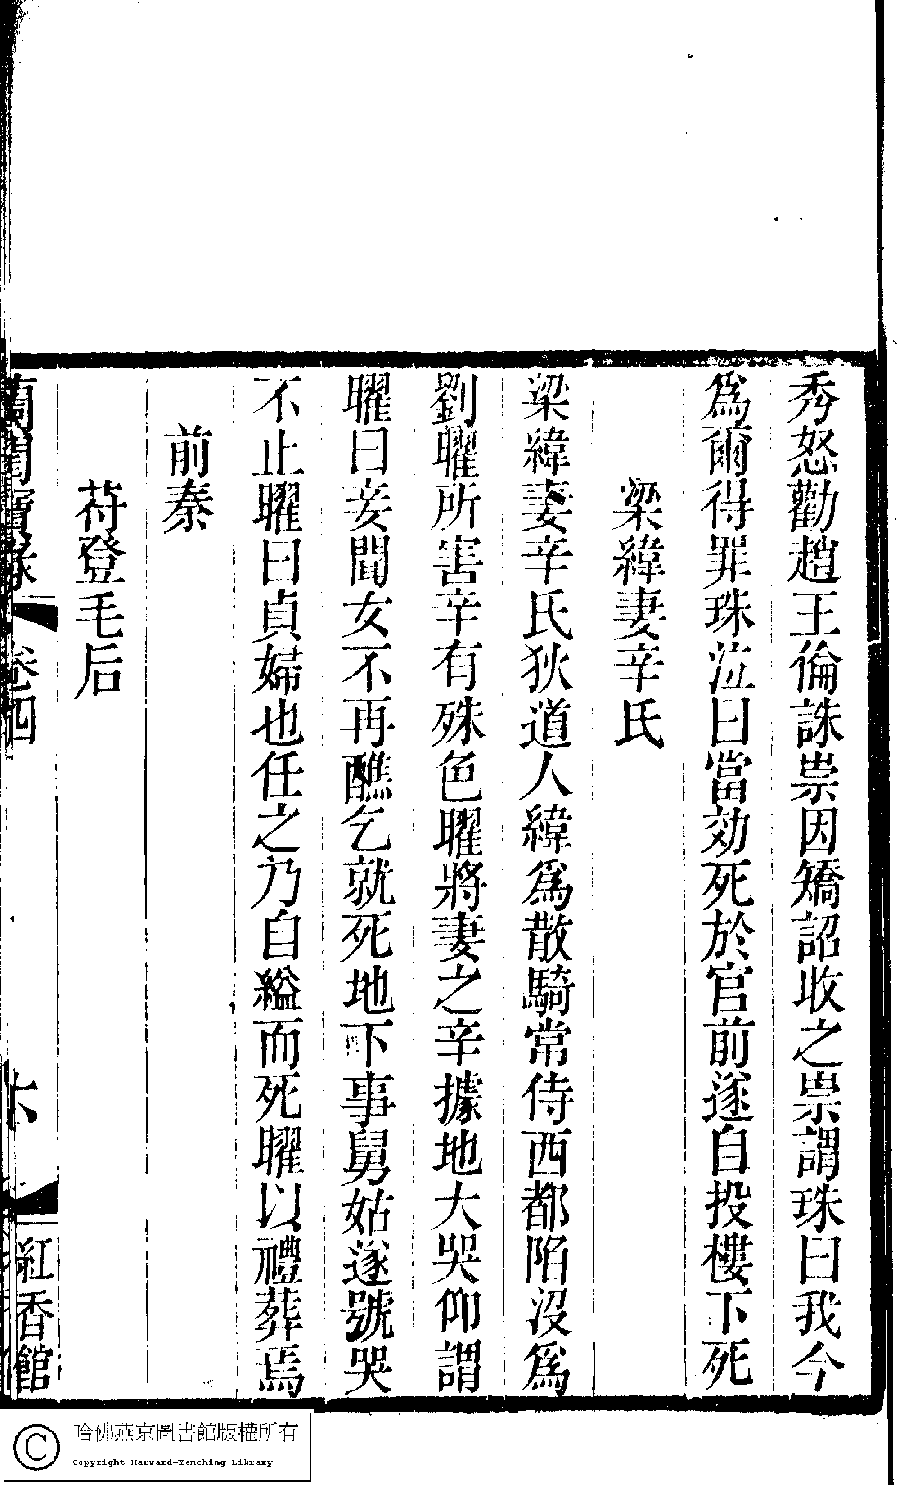 秀怒勸趙王倫誅崇因矯詔收之崇謂珠曰我今
爲爾得罪珠泣曰當効死於官前遂自投樓下死
梁緯妻辛氏
梁緯妻辛氏狄道人緯爲散騎常侍西都陷沒爲
劉曜所害辛有殊色曜將妻之辛據地大哭仰謂
曜曰妾聞女不再醮乞就死地下事舅姑遂號哭
不止曜曰貞婦也任之乃自縊而死曜以禮葬焉
前秦
苻登毛后
蘭閨寶錄
卷四
紅香館
哈佛燕京圖書館版權所有
Copyright Harvard-Yenching Library